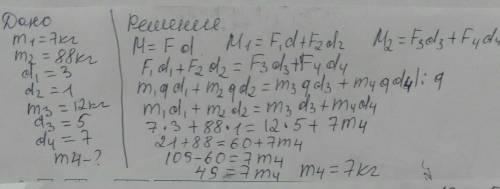 Дано
m1=7кг
m2=88кг
d1=3
d2=1
m3=12кг
d3=5
d4=7
m4-?
Решение
M=Fd M1=F1d+F2d2 M2=F3d3+F4d4
F1d1+F2d2=F3d3+F4d4
m1gd1+m2gd2=m3gd3+m4gd4|:g
m1d1+m2d2=m3d3+m4d4
7·3+88·1=12·5+7m4
21+88=60+7m4
109-60=7m4
49=7m4 m4=7кг